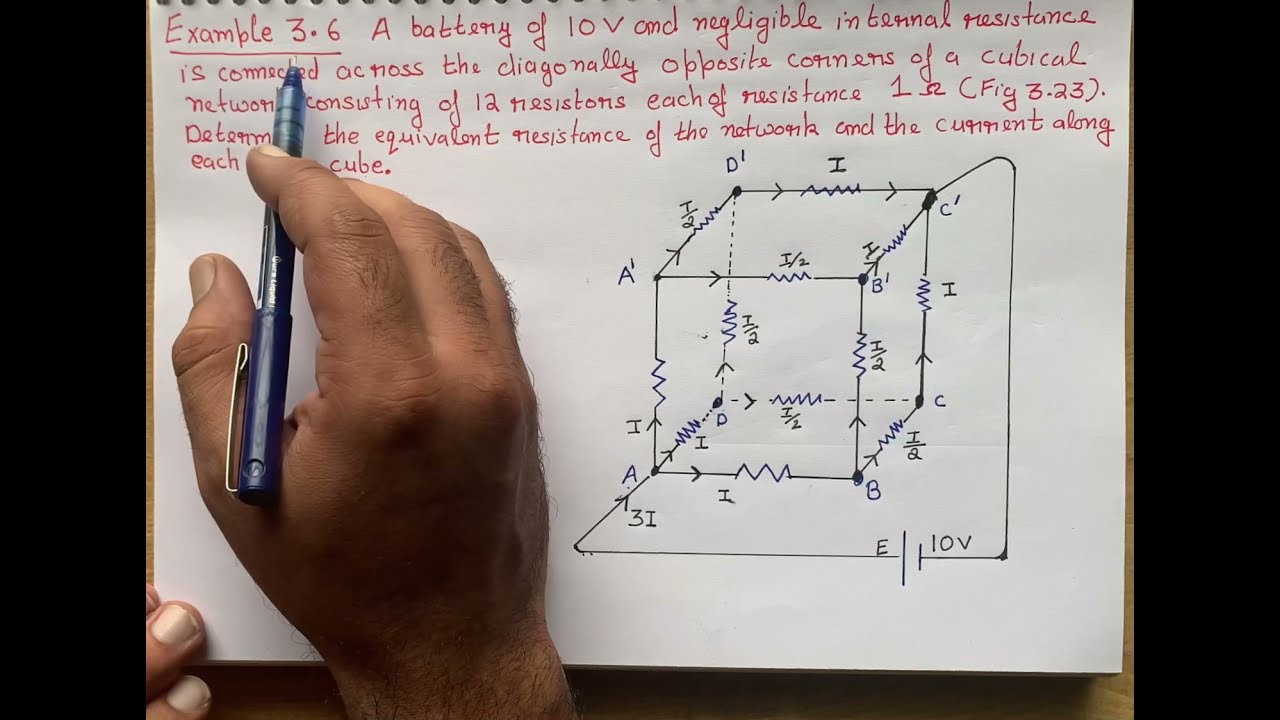 Example 3.6 A battery of 10V and negligible internal resistance
is connected across the diagonally opposite corners of a cubical
consisting of 12 resistors each of resistance 1 Ω (Fig 3.23).
the equivalent resistance of the network and the current along
each cube.
D' I
I/2
C'
A' I/2 I B'
I
I/2 I/2
D I/2 C
I I I/2
A I B
3I
E 10V